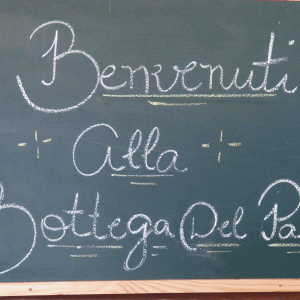 Benvenuti
alla
Bottega Del Pa